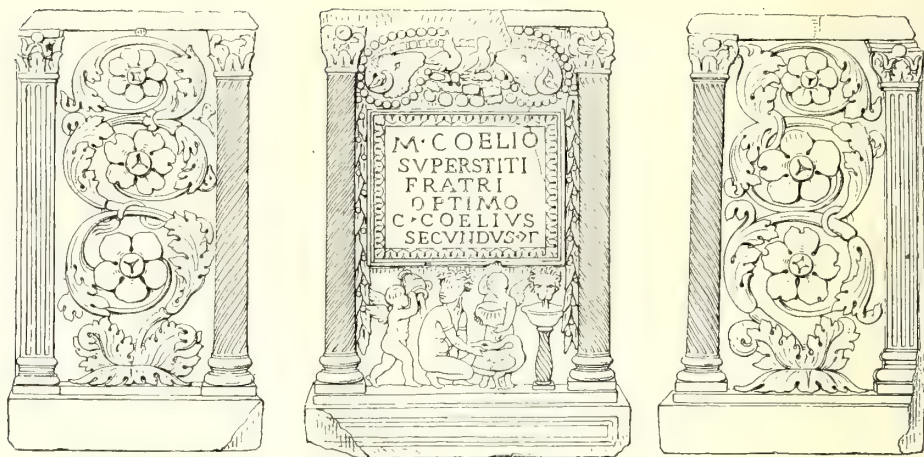 M·COELIO
SVPERSTITI
FRATRI
OPTIMO
C·COELIVS
SECVNDVS·Γ